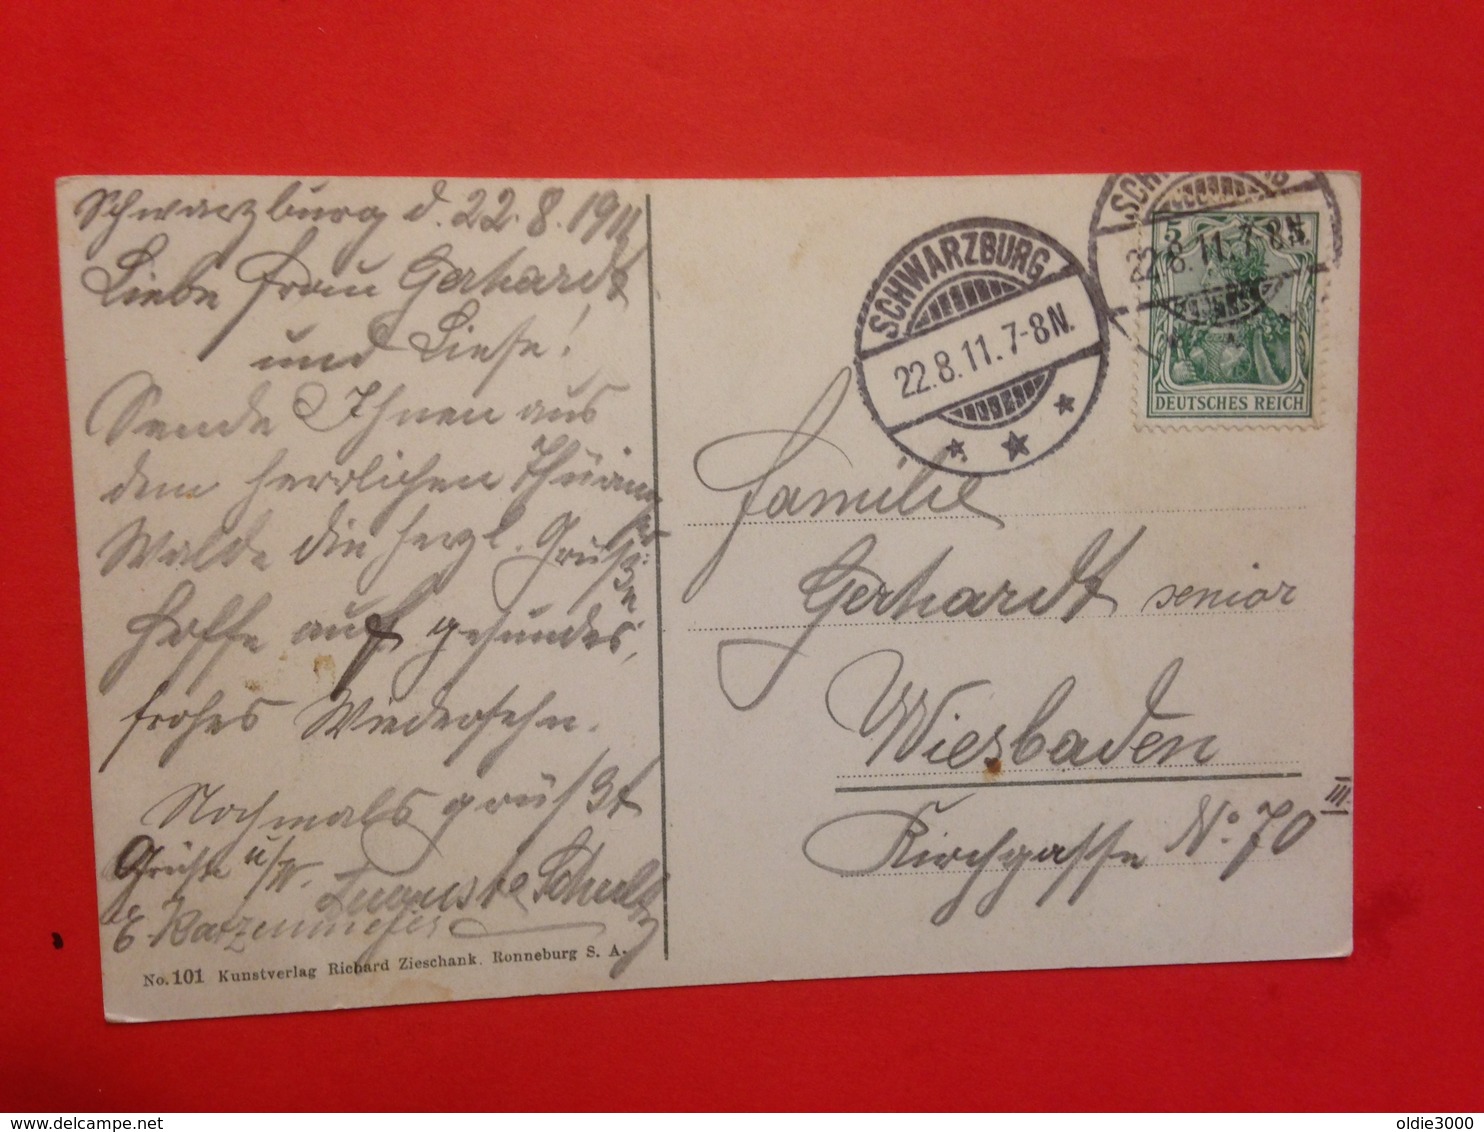 Schwarzburg d. 22.8.1911
Liebe Frau Gerhardt
und Liese!
Sende Ihnen aus
dem herrlichen Thüring
Walde die herzl. Grüße
Hoffe auf gesundes,
frohes Wiedersehn.
Nochmals grüßt
Grüße u/W. Auguste Schulz
E. Katzenmeier
No. 101 Kunstverlag Richard Zieschank, Ronneburg S. A.
SCHWARZBURG
22.8.11.7-8N.
22.8.11.7-8N.
5
DEUTSCHES REICH
Familie
Gerhardt senior
Wiesbaden
Kirchgasse No. 70 III.
delcampe.net
oldie3000